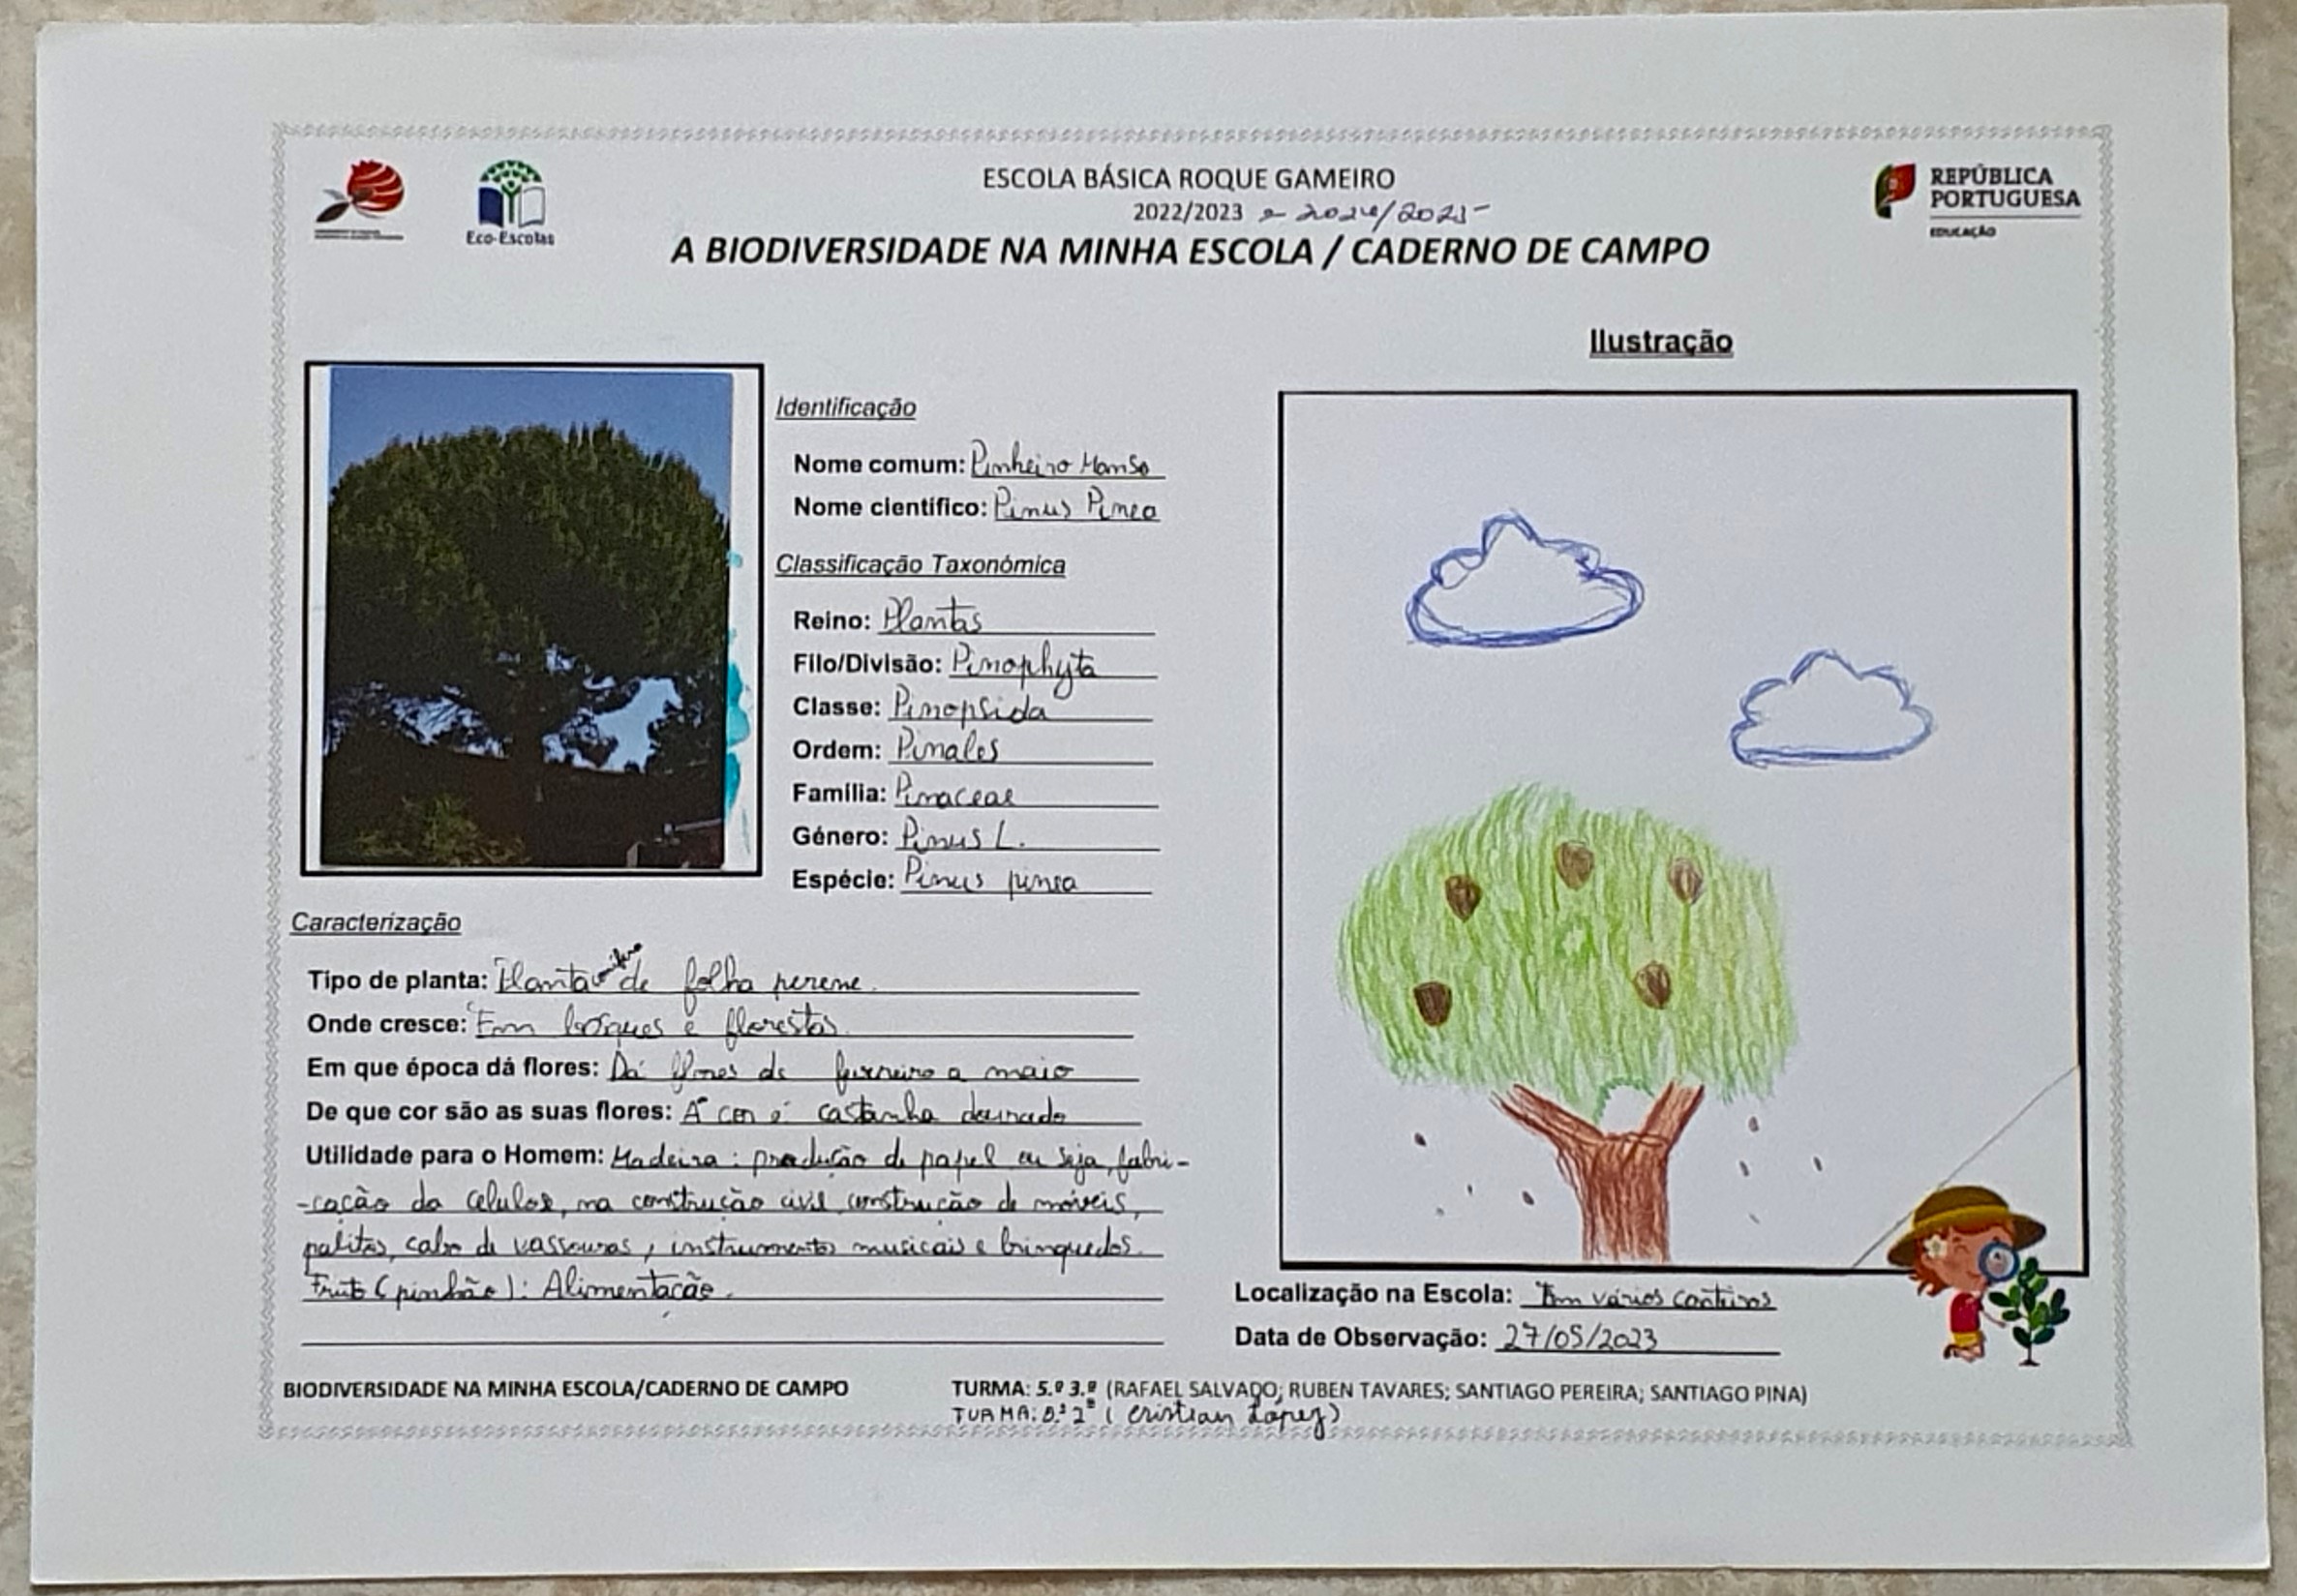 Eco-Escolas
ESCOLA BÁSICA ROQUE GAMEIRO
2022/2023 e 2024/2025
A BIODIVERSIDADE NA MINHA ESCOLA / CADERNO DE CAMPO
REPÚBLICA
PORTUGUESA
EDUCAÇÃO
Identificação
Nome comum: Pinheiro Manso
Nome científico: Pinus Pinea
Classificação Taxonómica
Reino: Plantas
Filo/Divisão: Pinophyta
Classe: Pinopsida
Ordem: Pinales
Família: Pinaceae
Género: Pinus L.
Espécie: Pinus pinea
Caracterização
Tipo de planta: Planta conífera de folha perene.
Onde cresce: Em bosques e florestas.
Em que época dá flores: Dá flores de fevereiro a maio
De que cor são as suas flores: A cor é castanha dourado
Utilidade para o Homem: Madeira: produção de papel ou seja, fabri-
-cação da celulose, na construção civil, construção de móveis,
palitos, cabo de vassouras, instrumentos musicais e brinquedos.
Fruto (pinhão): Alimentação.
Ilustração
Localização na Escola: Em vários canteiros
Data de Observação: 27/05/2023
BIODIVERSIDADE NA MINHA ESCOLA/CADERNO DE CAMPO
TURMA: 5.º 3.ª (RAFAEL SALVADO; RUBEN TAVARES; SANTIAGO PEREIRA; SANTIAGO PINA)
TURMA: 5.º 2ª ( Cristian Lopez)